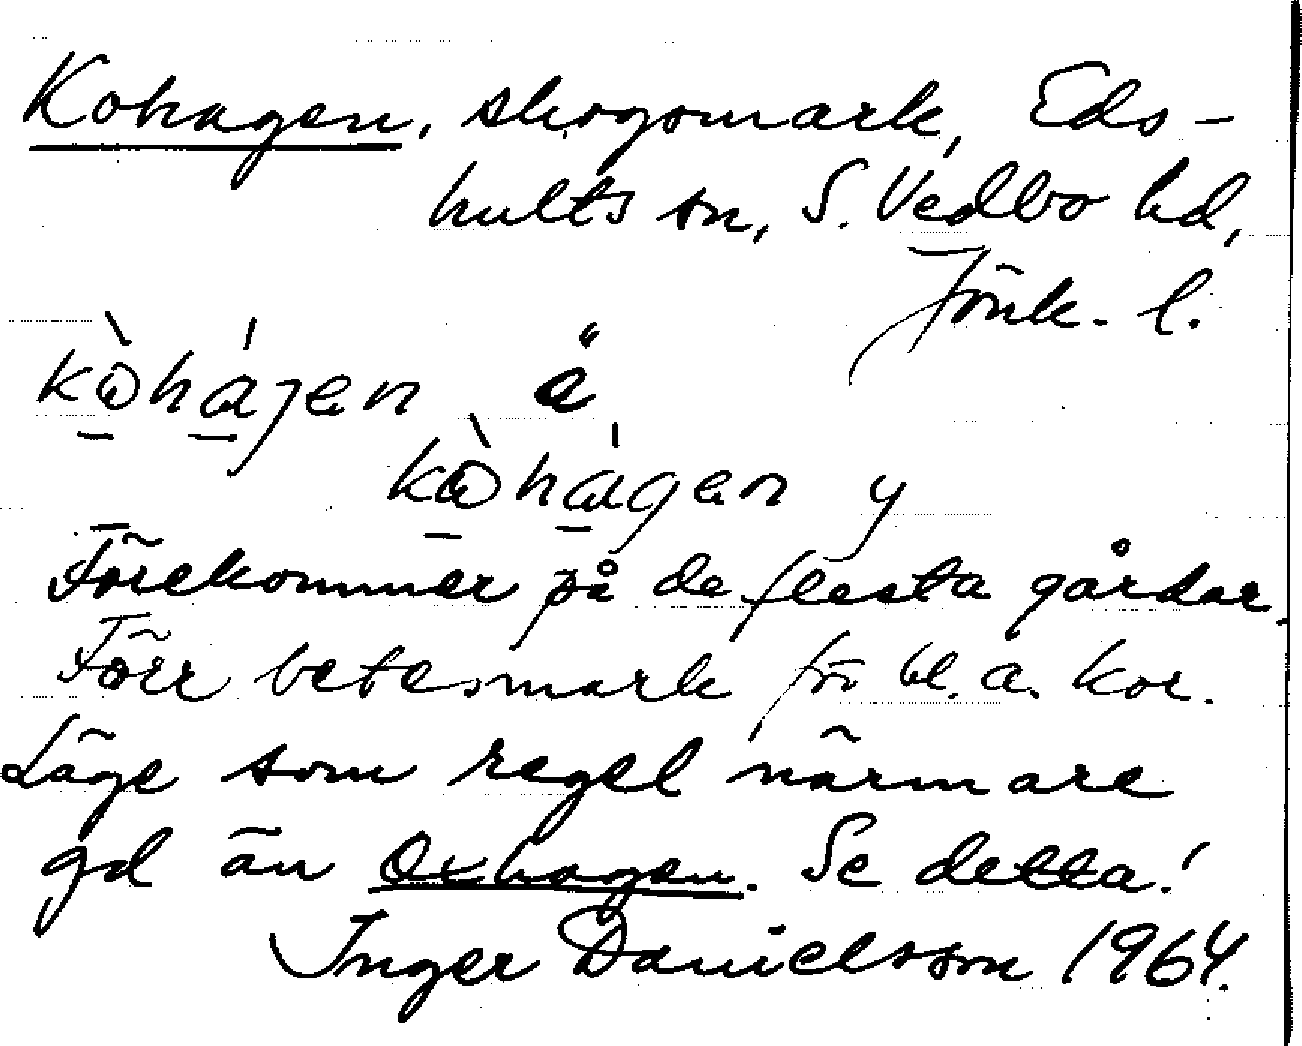 Kohagen, skogsmark, Eds-
hults sn, S. Vedbo hd,
Jönk. l.
kòhágen ä
kòhágen y
Förekommer på de flesta gårdar.
Förr betesmark för bl.a. kor.
Läge som regel närmare
gd än Oxhagen. Se detta!
Inger Danielsson 1964.